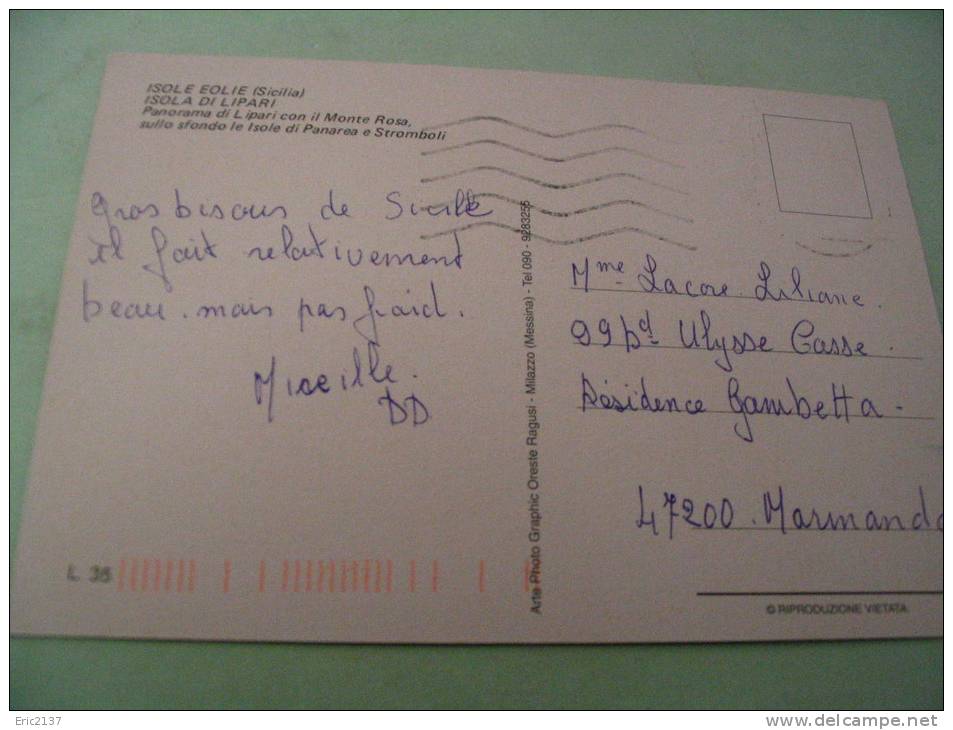 ISOLE EOLIE (Sicilia)
ISOLA DI LIPARI
Panorama di Lipari con il Monte Rosa,
sullo sfondo le Isole di Panarea e Stromboli
Gros bisous de Sicile
il fait relativement
beau. mais pas froid.
Mireille.
DD
L. 36
Arte Photo Graphic Oreste Ragusi - Milazzo (Messina) - Tel 090 - 9283255
Mme Lacore Liliane.
99 bd Ulysse Casse.
Résidence Gambetta -
47200. Marmande
© RIPRODUZIONE VIETATA
Eric2137
www.delcampe.net